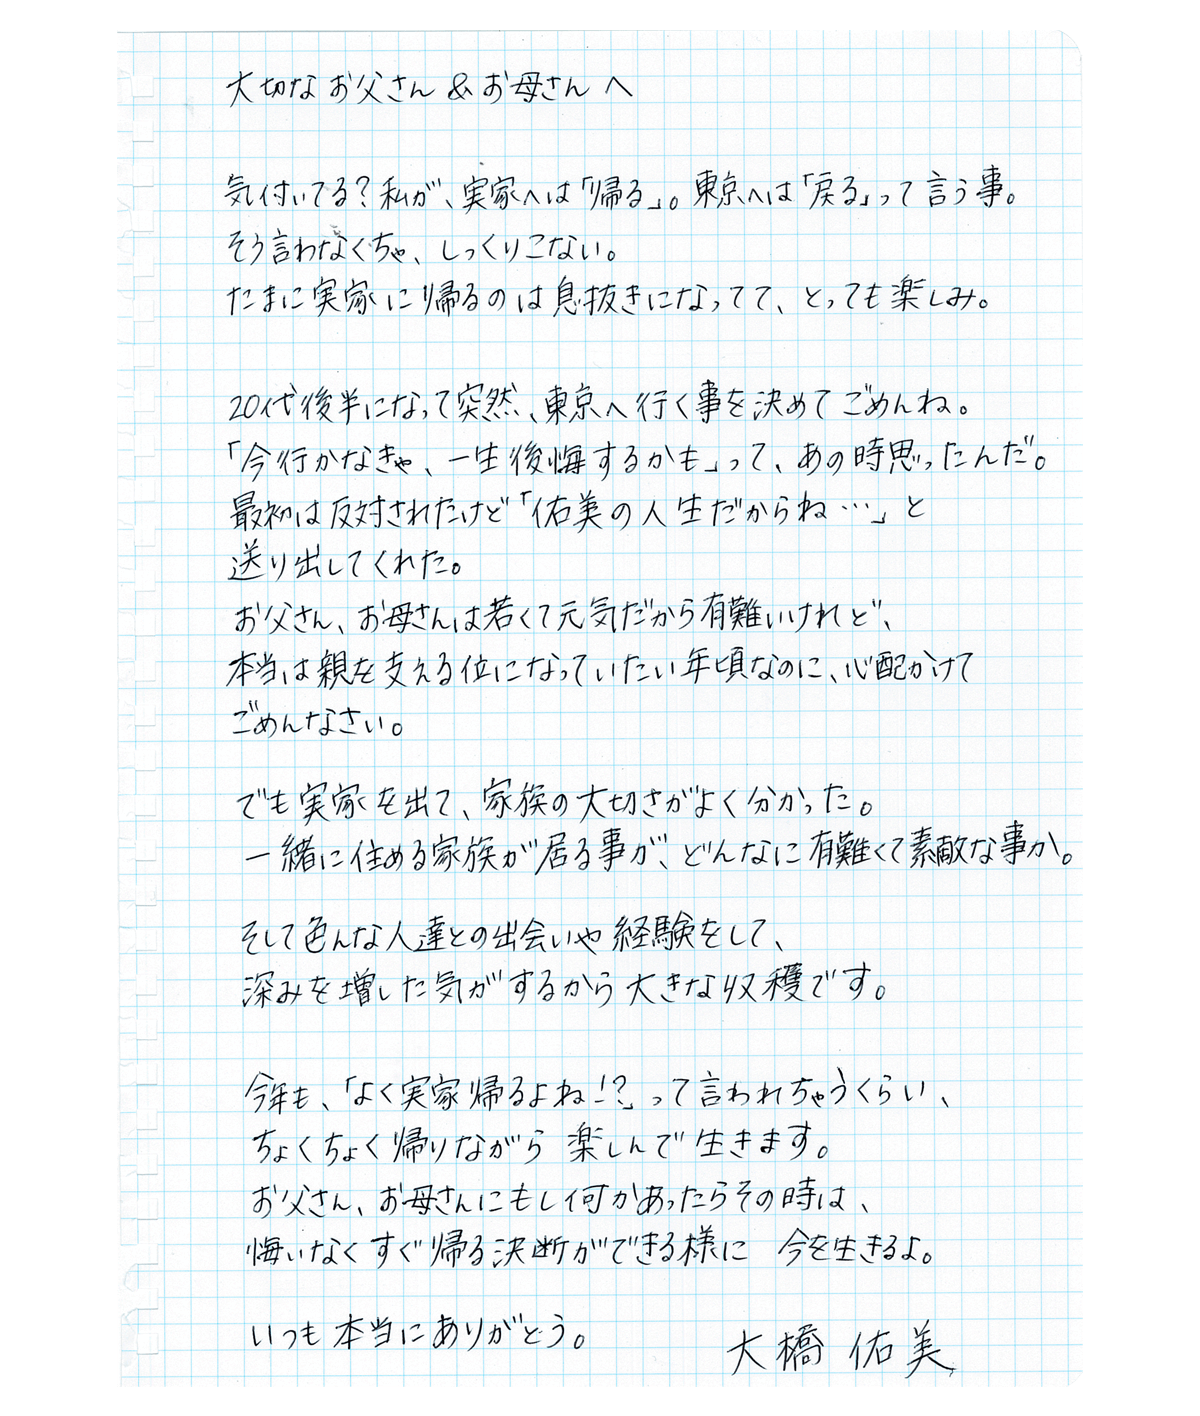 大切なお父さん&お母さんへ
気付いてる?私が、実家へは「帰る」。東京へは「戻る」って言う事。
そう言わなくちゃ、しっくりこない。
たまに実家に帰るのは息抜きになってて、とっても楽しみ。
20代後半になって突然、東京へ行く事を決めてごめんね。
「今行かなきゃ、一生後悔するかも」って、あの時思ったんだ。
最初は反対されたけど「佑美の人生だからね…」と
送り出してくれた。
お父さん、お母さんは若くて元気だから有難いけれど、
本当は親を支える位になっていたい年頃なのに、心配かけて
ごめんなさい。
でも実家を出て、家族の大切さがよく分かった。
一緒に住める家族が居る事が、どんなに有難くて素敵な事か。
そして色んな人達との出会いや経験をして、
深みを増した気がするから大きな収穫です。
今年も、「よく実家帰るよね!?」って言われちゃうくらい、
ちょくちょく帰りながら楽しんで生きます。
お父さん、お母さんにもし何かあったらその時は、
悔いなくすぐ帰る決断ができる様に 今を生きるよ。
いつも本当にありがとう。
大橋 佑美